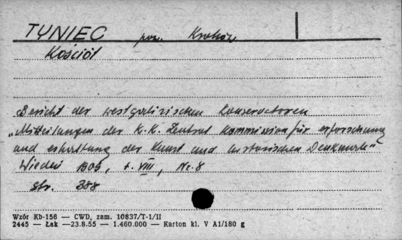 TYNIEC pow. Kraków
Kościół
Bericht der westgalizischen Konservatoren
"Mitteilungen der K.K. Zentral Kommission für erforschung
und erhaltung der Kunst und historischen Denkmale"
Wiedeń 1909, t. VIII, Nr. 8
str. 388
Wzór Kb-156 — CWD, zam. 10837/T-1/II
2445 — Łak —23.8.55 — 1.460.000 — Karton kl. V A1/180 g